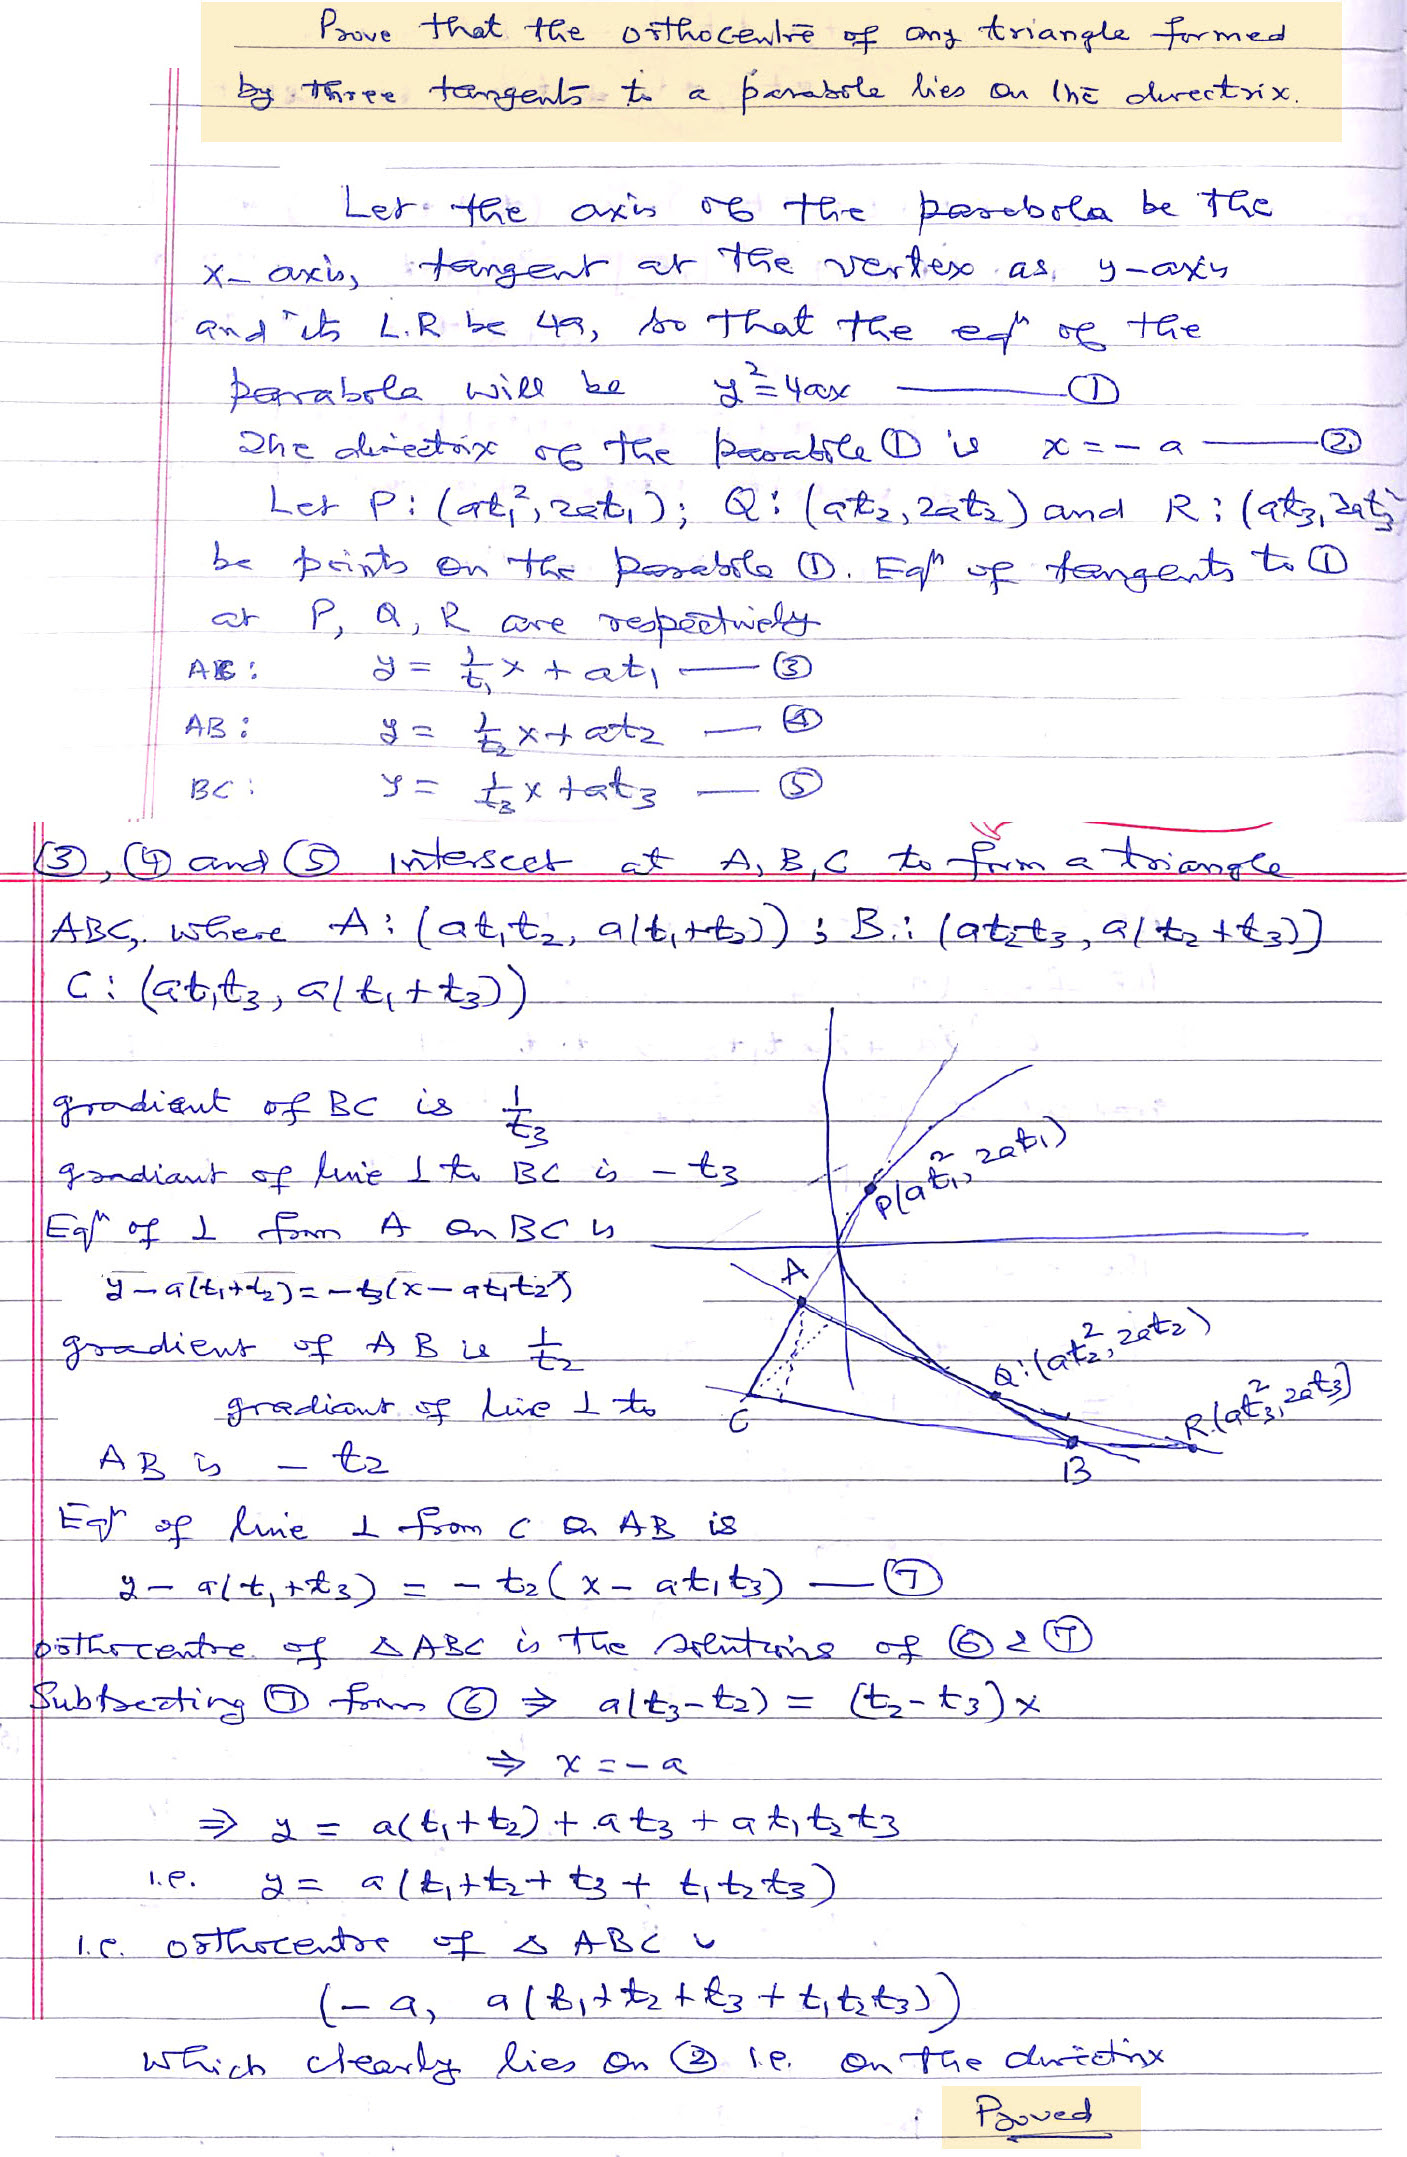 Prove that the orthocentre of any triangle formed
by three tangents to a parabola lies on the directrix.
Let the axis of the parabola be the
x-axis, tangent at the vertex as y-axis
and its L.R be 4a, so that the eqⁿ of the
parabola will be y²=4ax — ①
The directrix of the parabola ① is x = -a — ②
Let P: (at₁², 2at₁); Q: (at₂, 2at₂) and R: (at₃, 2at₃
be points on the parabola ①. Eqⁿ of tangents to ①
at P, Q, R are respectively
AC: y = 1/t₁ x + at₁ — ③
AB: y = 1/t₂ x + at₂ — ④
BC: y = 1/t₃ x + at₃ — ⑤
③, ④ and ⑤ intersect at A, B, C to form a triangle
ABC, where A: (at₁t₂, a(t₁+t₂)); B: (at₂t₃, a(t₂+t₃))
C: (at₁t₃, a(t₁+t₃))
gradient of BC is 1/t₃
gradiant of line ⊥ to BC is -t₃
Eqⁿ of ⊥ from A on BC is
y - a(t₁+t₂) = -t₃(x - at₁t₂)
gradient of AB is 1/t₂
gradiant of line ⊥ to
AB is - t₂
Eqⁿ of line ⊥ from C on AB is
y - a(t₁+t₃) = - t₂(x - at₁t₃) — ⑦
P(at₁², 2at₁)
A
Q:(at₂², 2at₂)
R.(at₃², 2at₃)
C
B
orthocentre of △ABC is the solutions of ⑥ & ⑦
Subtracting ⑦ from ⑥ ⇒ a(t₃-t₂) = (t₂-t₃)x
⇒ x = -a
⇒ y = a(t₁+t₂) + at₃ + at₁t₂t₃
i.e. y = a(t₁+t₂+t₃ + t₁t₂t₃)
i.e. orthocentre of △ ABC is
(-a, a(t₁+t₂+t₃+t₁t₂t₃))
which clearly lies on ② i.e. on the directrix
Proved